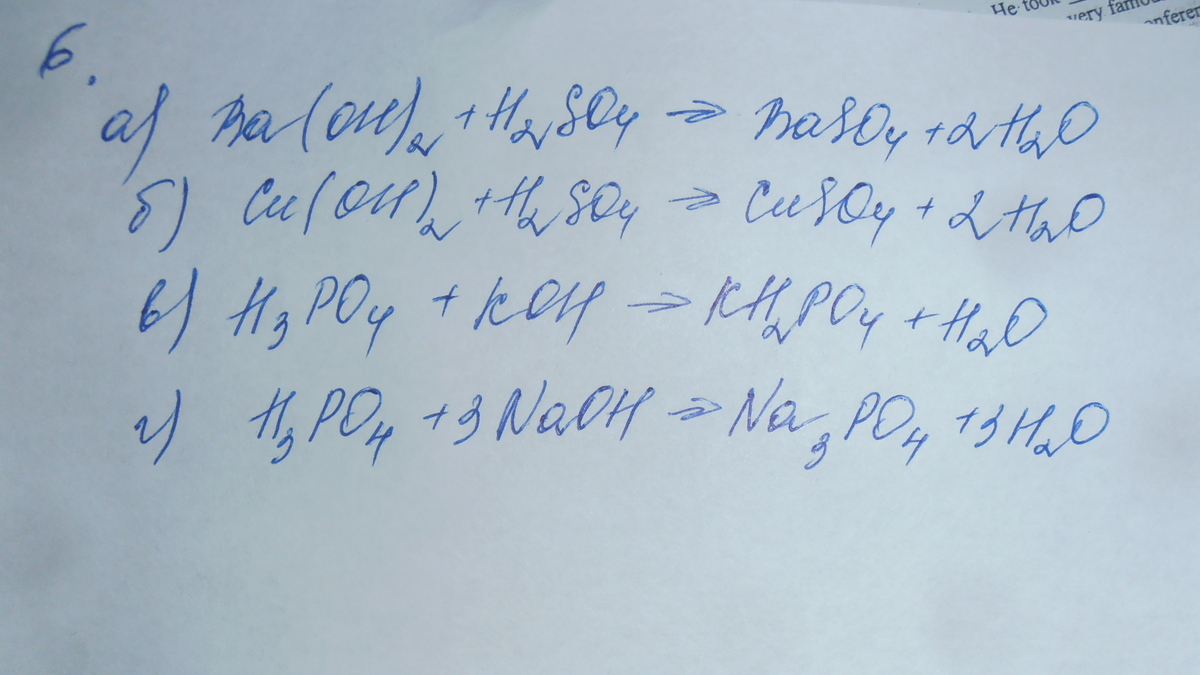 He took
very famou
onferen
6.
а) Ba(OH)₂ + H₂SO₄ → BaSO₄ + 2H₂O
б) Cu(OH)₂ + H₂SO₄ → CuSO₄ + 2H₂O
в) H₃PO₄ + KOH → KH₂PO₄ + H₂O
г) H₃PO₄ + 3NaOH → Na₃PO₄ + 3H₂O